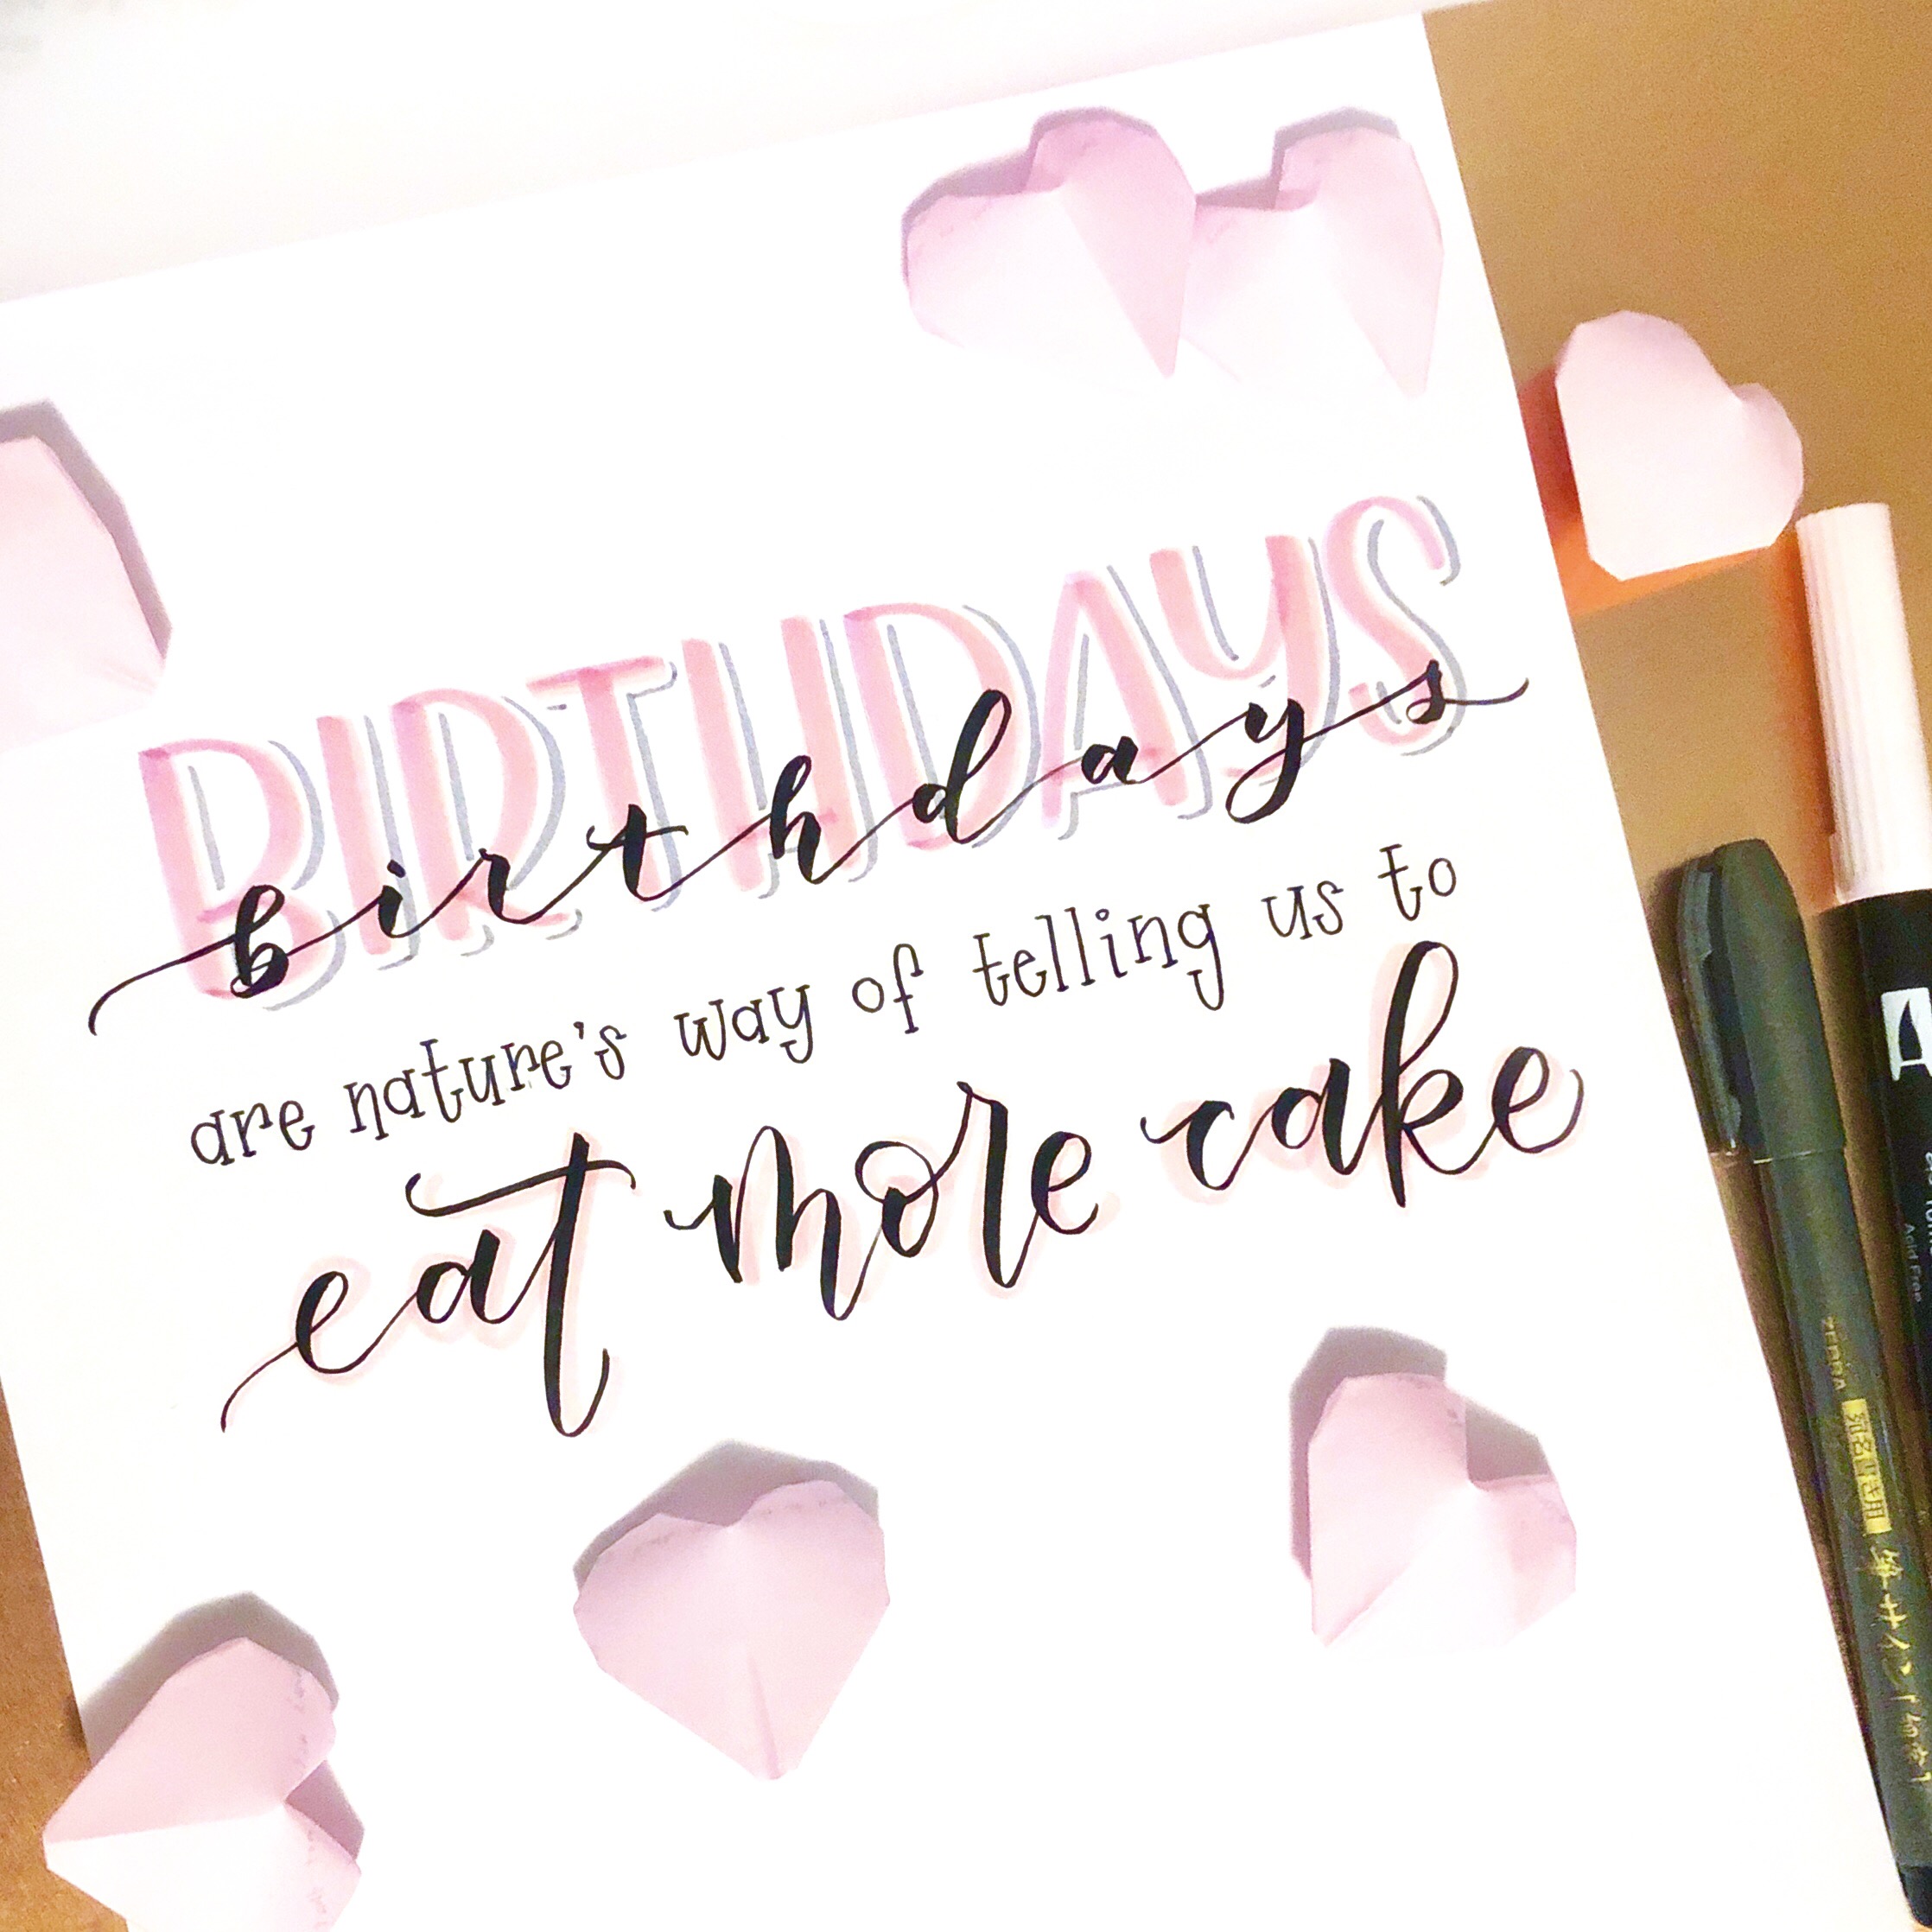 BIRTHDAYS
birthdays
are nature's way of telling us to
eat more cake
Acid Free
ZEBRA